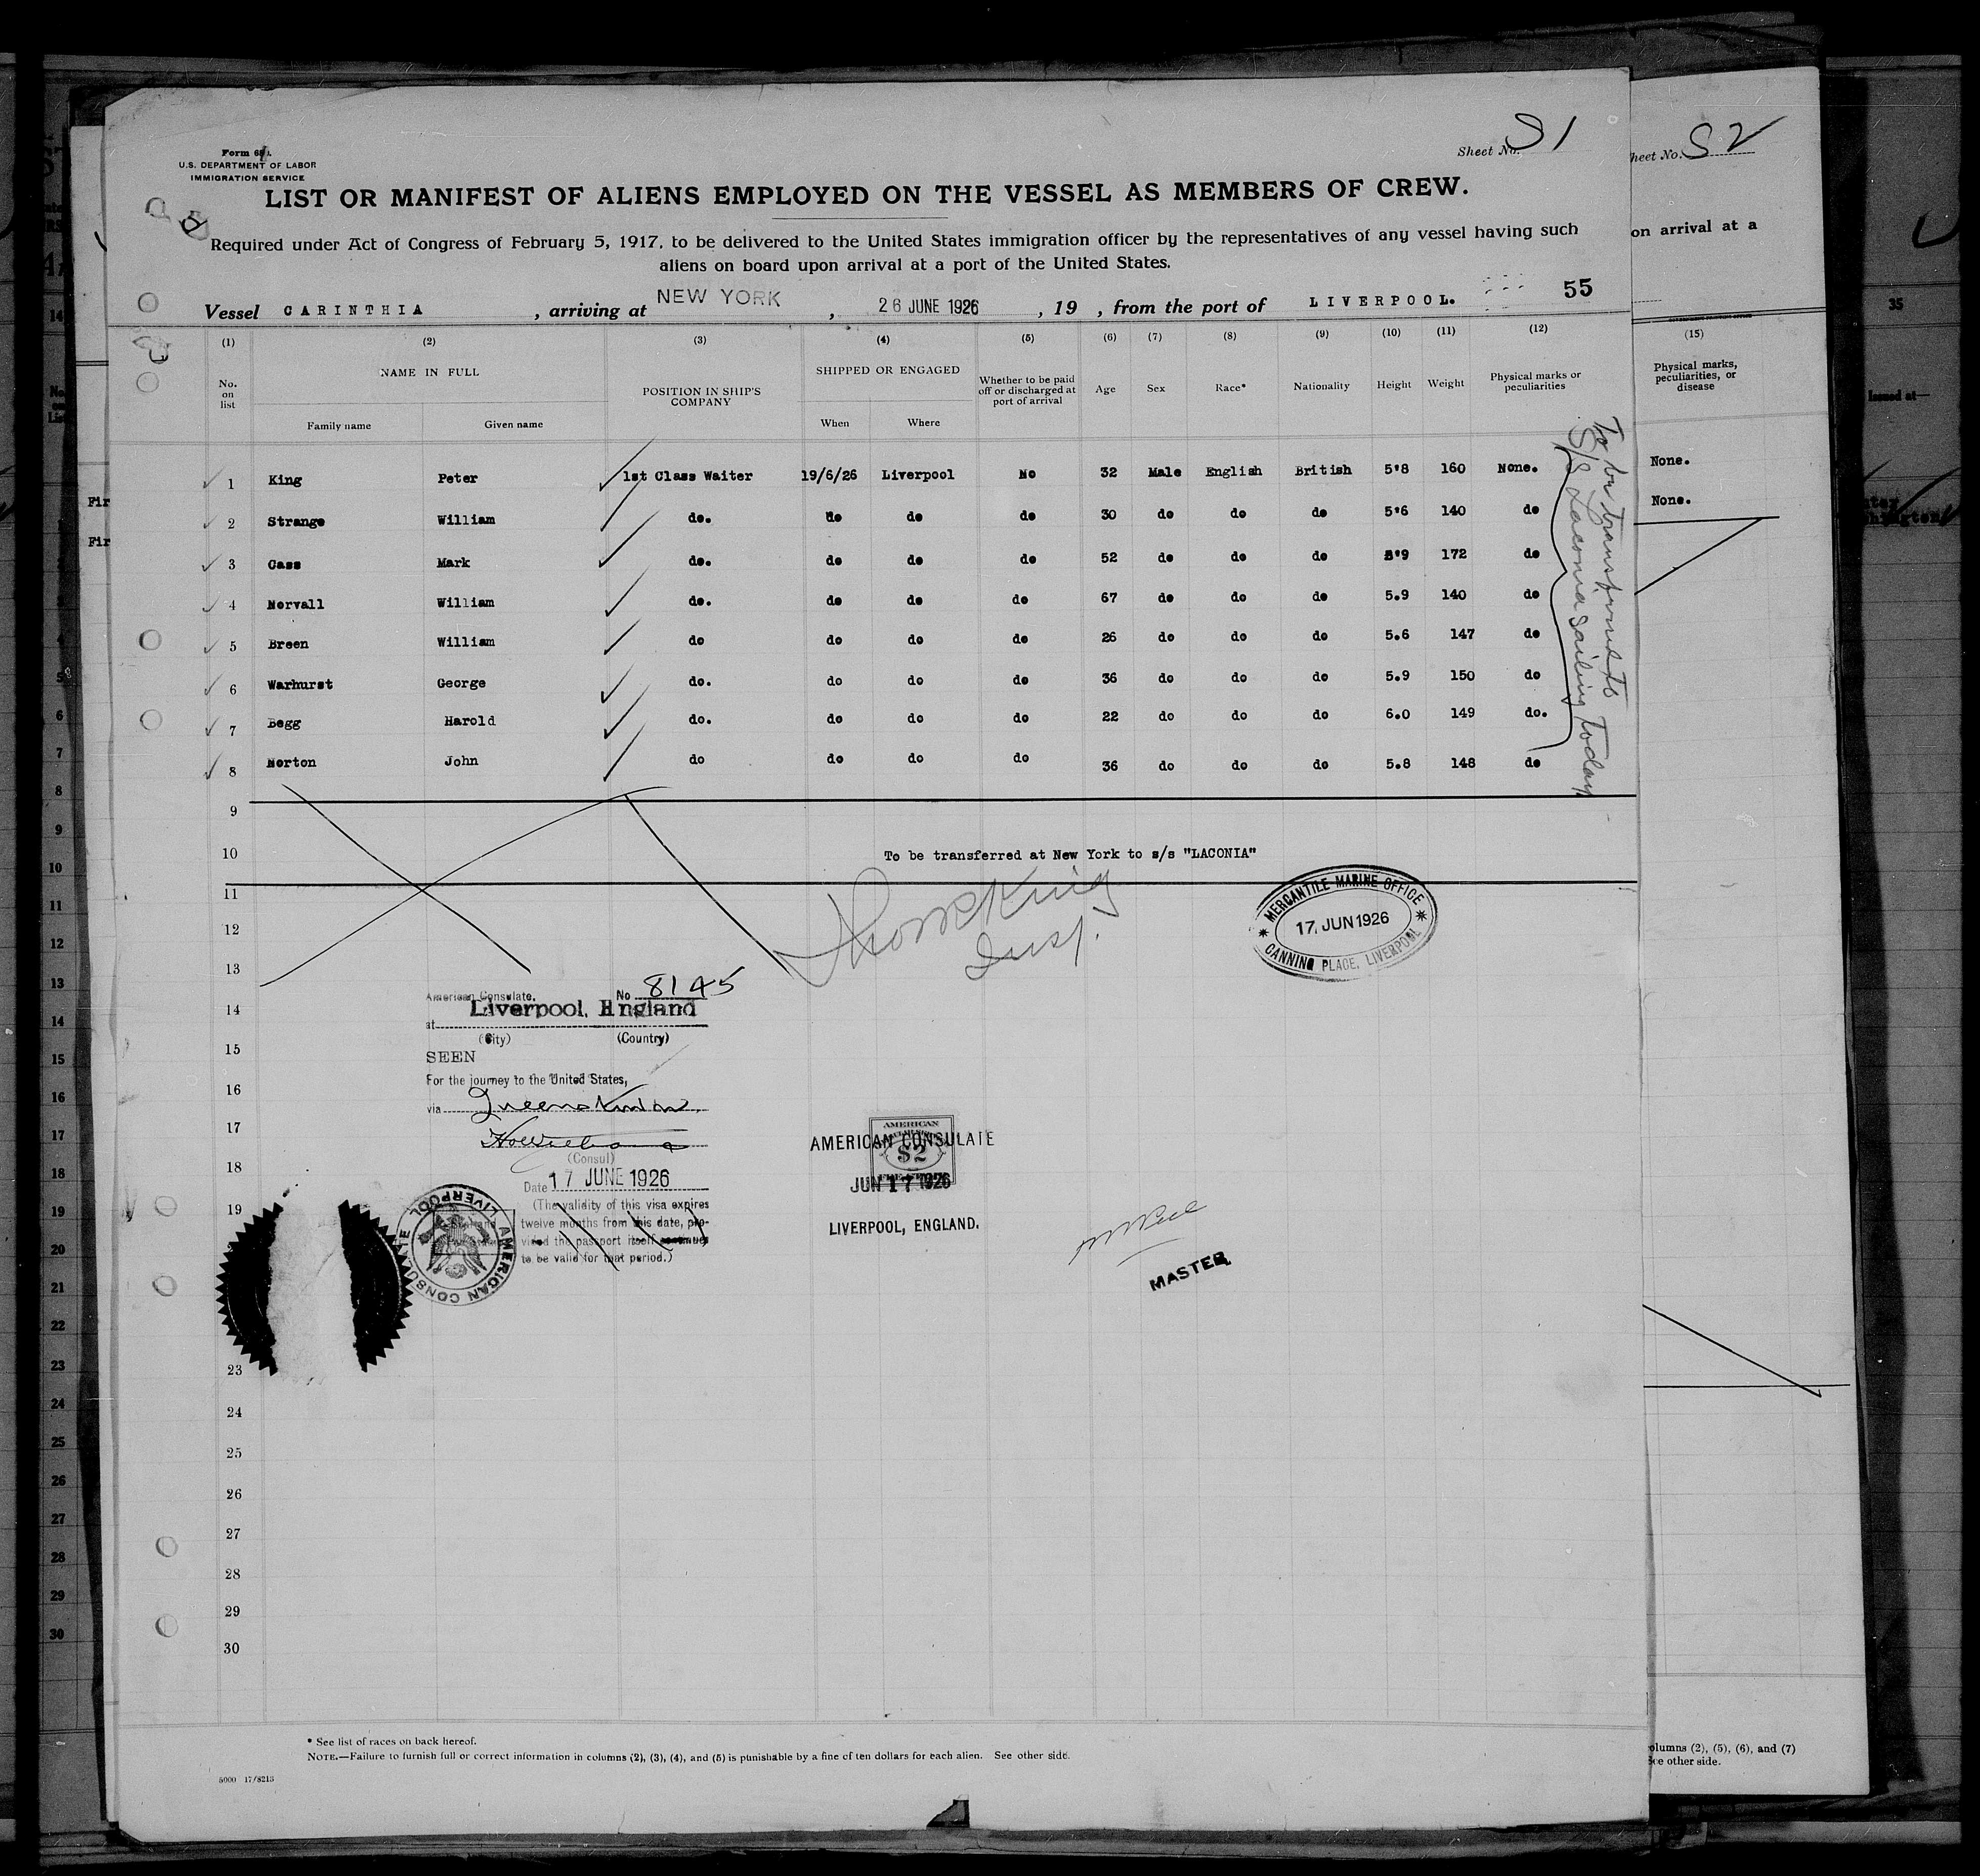 Form 680.
U.S. DEPARTMENT OF LABOR
IMMIGRATION SERVICE
Sheet No. S1
LIST OR MANIFEST OF ALIENS EMPLOYED ON THE VESSEL AS MEMBERS OF CREW.
Required under Act of Congress of February 5, 1917, to be delivered to the United States immigration officer by the representatives of any vessel having such
aliens on board upon arrival at a port of the United States.
Vessel CARINTHIA, arriving at NEW YORK, 26 JUNE 1926, 19 , from the port of LIVERPOOL. 55
(1) (2) (3) (4) (5) (6) (7) (8) (9) (10) (11) (12)
No. on list NAME IN FULL Family name Given name POSITION IN SHIP'S COMPANY SHIPPED OR ENGAGED When Where Whether to be paid off or discharged at port of arrival Age Sex Race* Nationality Height Weight Physical marks or peculiarities
1 King Peter 1st Class Waiter 19/6/26 Liverpool No 32 Male English British 5'8 160 None.
2 Strange William do. do do do 30 do do do 5'6 140 do
3 Cass Mark do. do do do 52 do do do 5'9 172 do
4 Norvall William do. do do do 67 do do do 5.9 140 do
5 Breen William do do do do 26 do do do 5.6 147 do
6 Warhurst George do. do do do 36 do do do 5.9 150 do
7 Begg Harold do. do do do 22 do do do 6.0 149 do.
8 Norton John do do do do 36 do do do 5.8 148 do
To be transferred to
S/S Laconia sailing today
9
10 To be transferred at New York to s/s "LACONIA"
11
12
13
14
15
16
17
18
19
20
21
22
23
24
25
26
27
28
29
30
King
Insp.
MERCANTILE MARINE OFFICE
17 JUN 1926
CANNING PLACE, LIVERPOOL
American Consulate, No 8145
at Liverpool, England
(City) (Country)
SEEN
For the journey to the United States,
via Queenstown.
(Consul)
Date 17 JUNE 1926
(The validity of this visa expires
twelve months from this date, pro-
vided the passport itself continues
to be valid for that period.)
AMERICAN CONSULATE LIVERPOOL
AMERICAN
$2
AMERICAN CONSULATE
JUN 17 1926
LIVERPOOL, ENGLAND.
MASTER
* See list of races on back hereof.
NOTE.—Failure to furnish full or correct information in columns (2), (3), (4), and (5) is punishable by a fine of ten dollars for each alien. See other side.
5000 17/8213
heet No. S2
on arrival at a
(15)
Physical marks, peculiarities, or disease
None.
None.
olumns (2), (5), (6), and (7)
See other side.
35
Issued at—
Fir
Fir